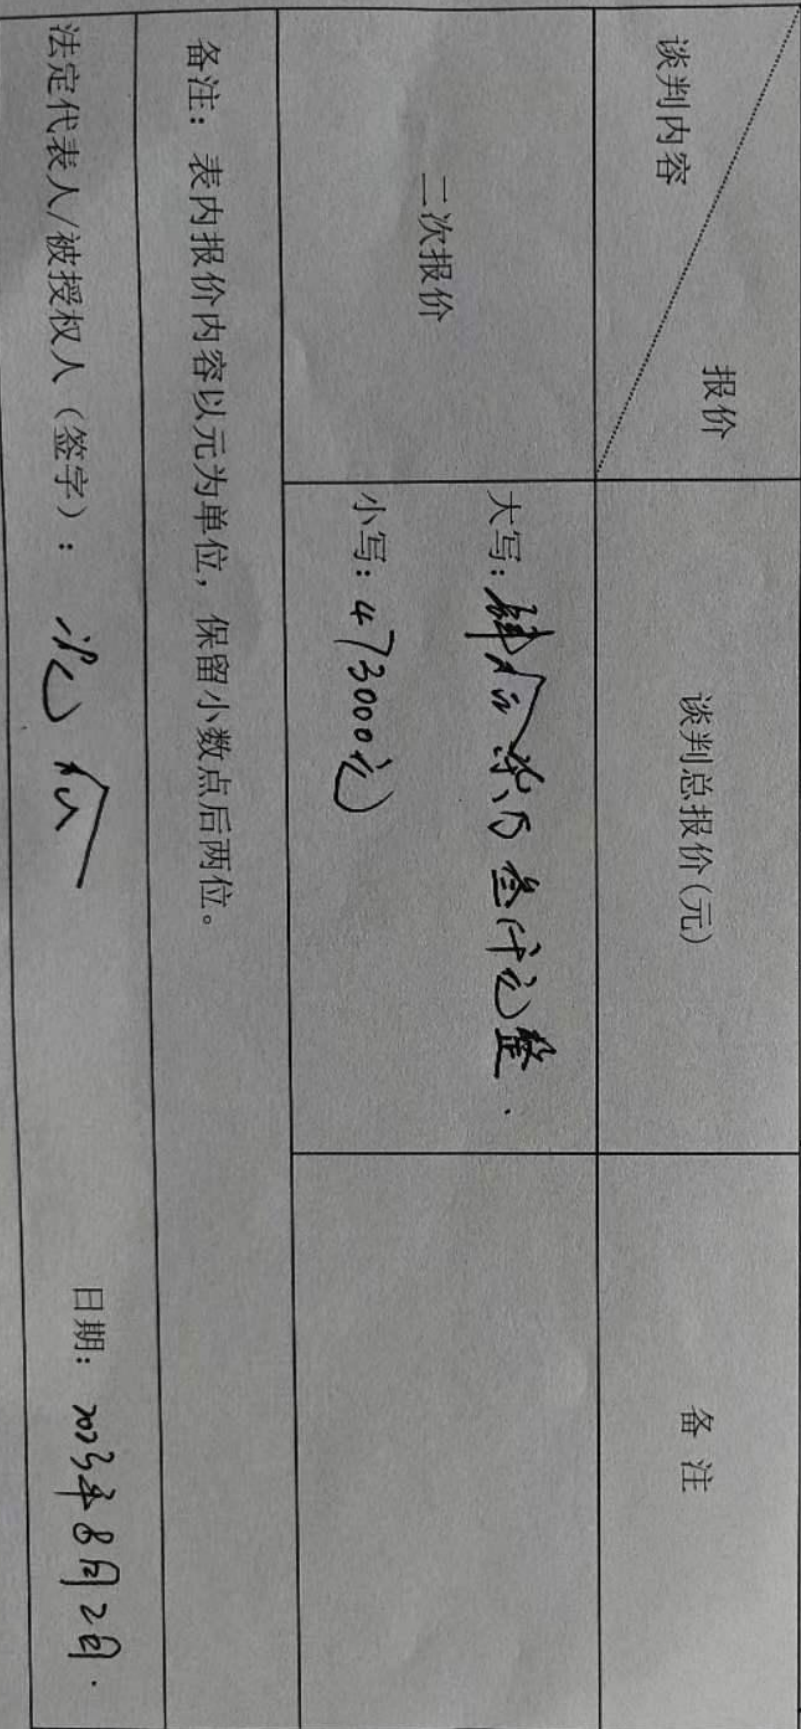 谈判内容
报价
谈判总报价(元)
备 注
二次报价
大写：肆拾柒万叁仟元整.
小写：473000元
备注：表内报价内容以元为单位，保留小数点后两位。
法定代表人/被授权人（签字）： 日期：2023年8月2日.